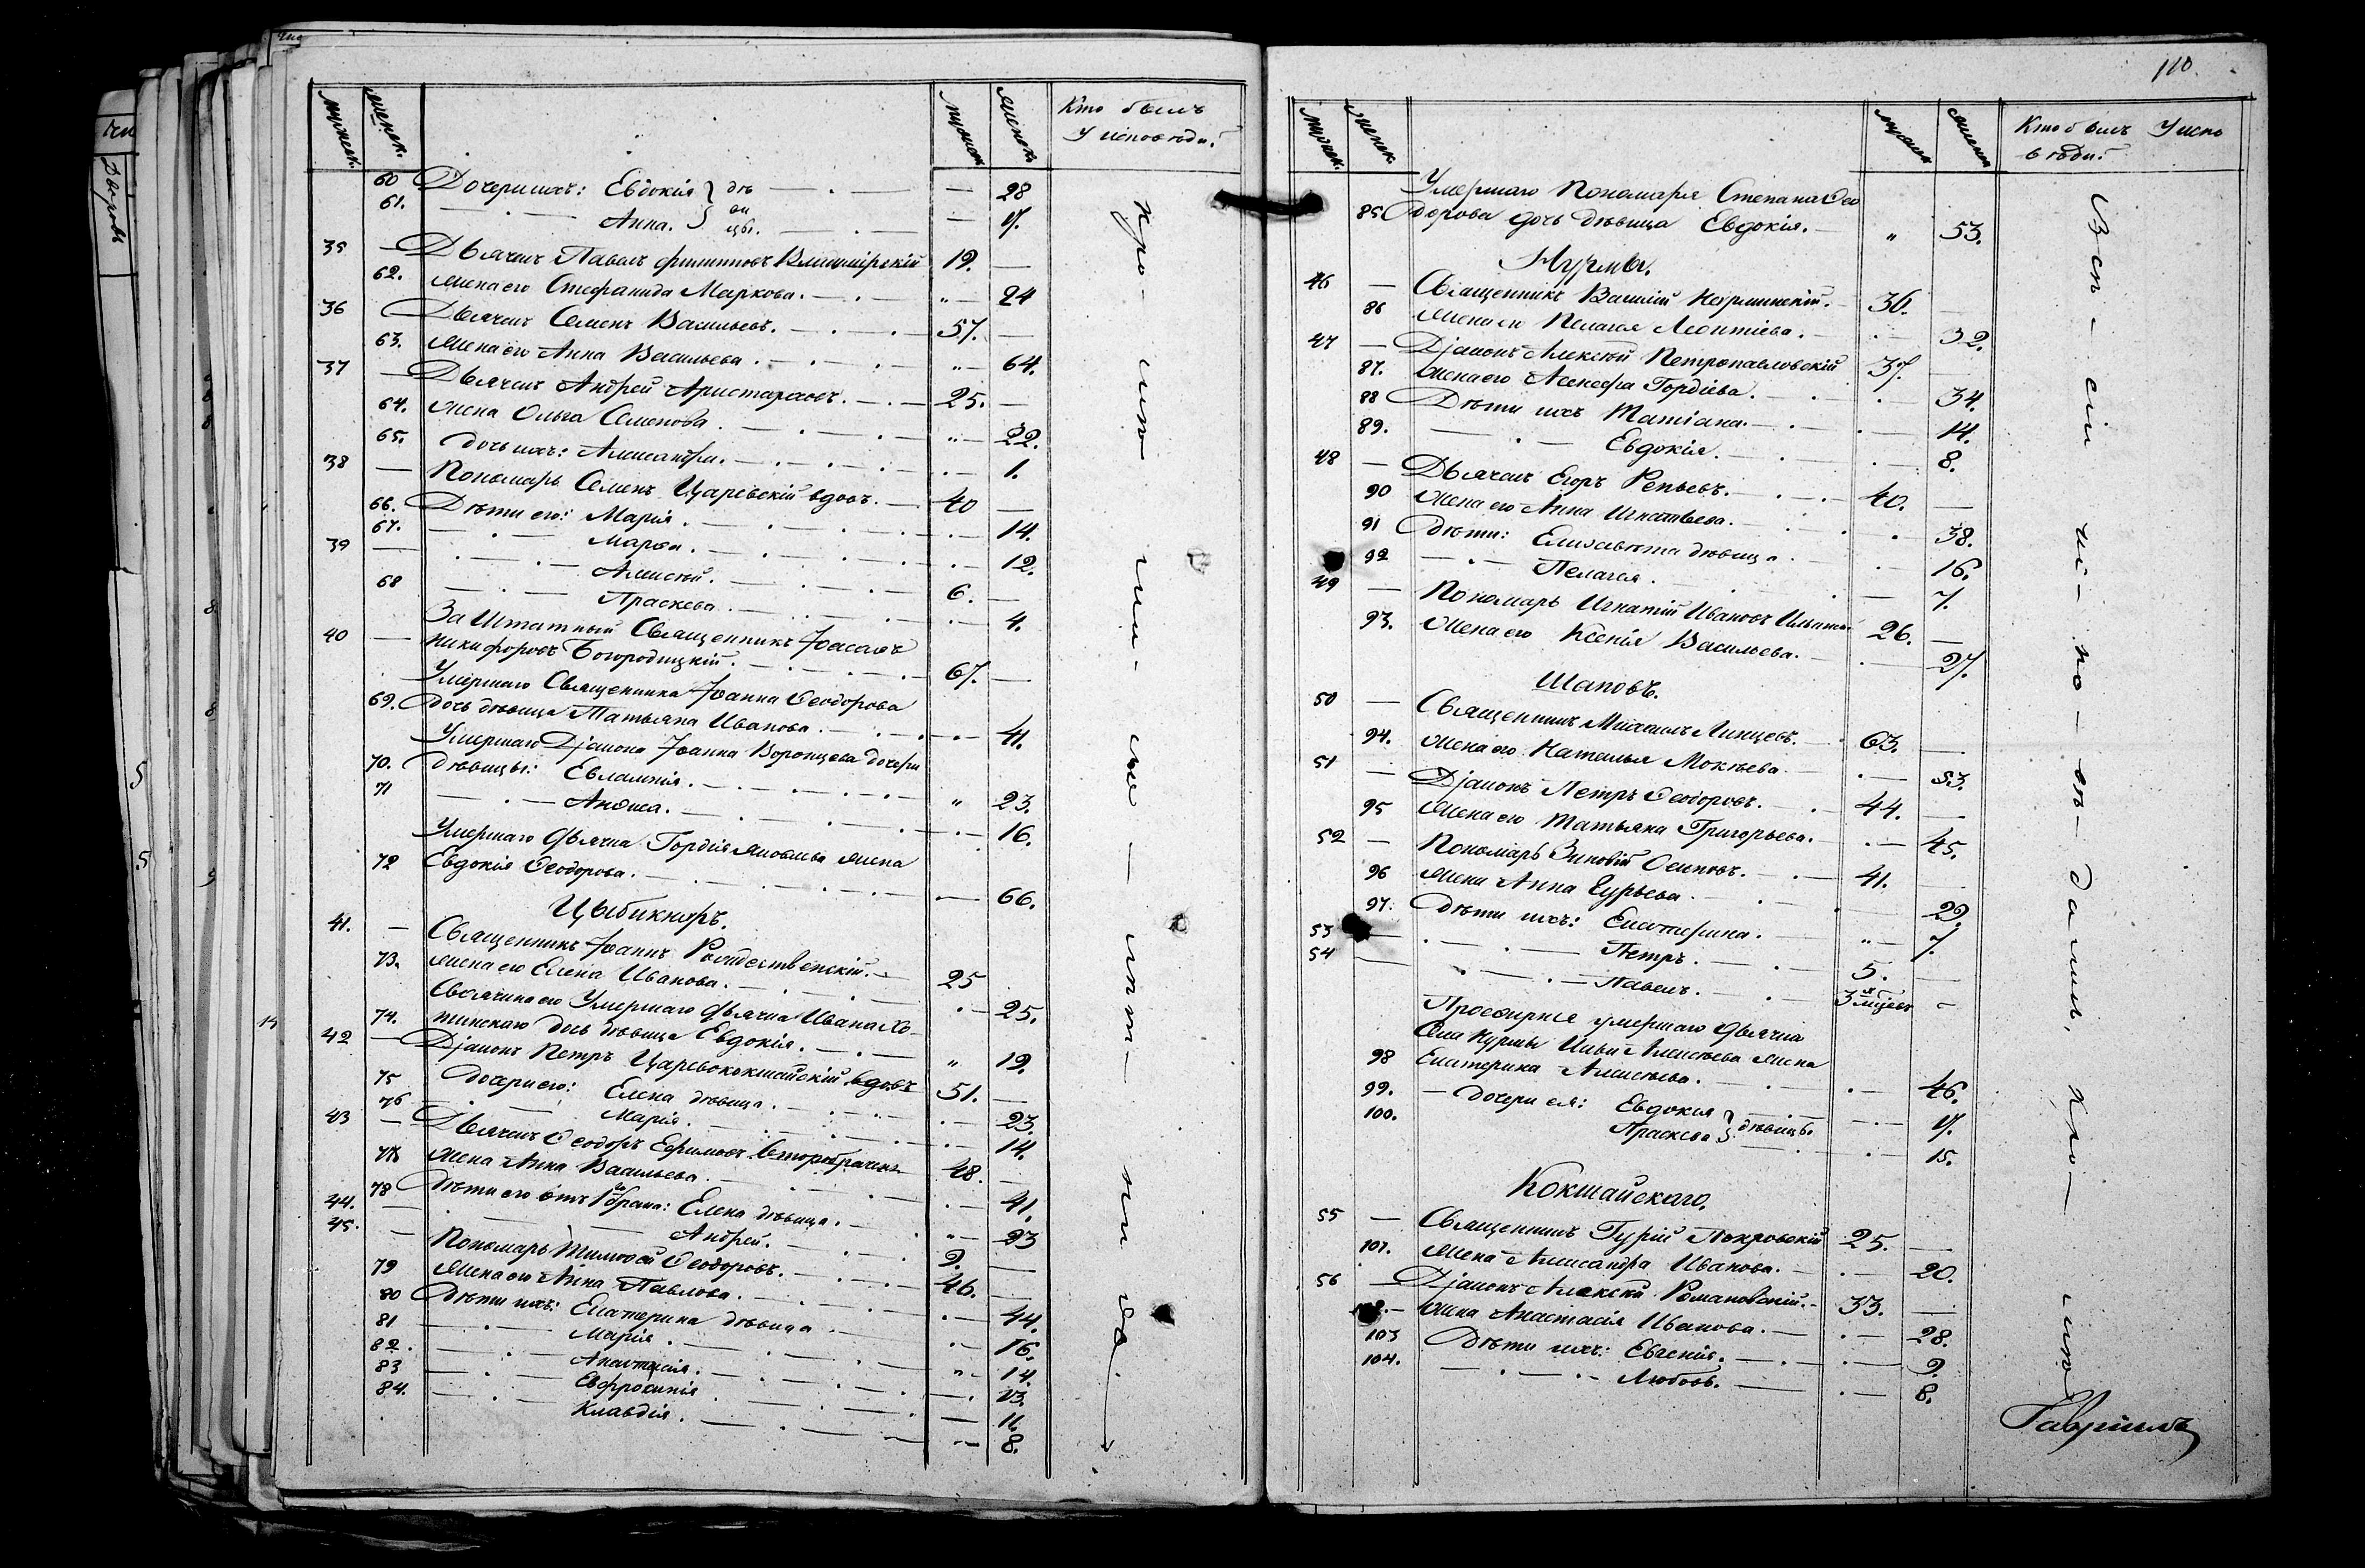 мужеск. женск. мужеск женск Кто былъ у исповѣди.
60 Дочери ихъ: Евдокія } дѣ — 28
61. Анна. } ви цы. — 17.
35 — Дьячекъ Павелъ Филиповъ Владимірскій 19. —
62. Жена его Стефанида Маркова. „ 24
36 Дьячекъ Семенъ Васильевъ. 57. —
63. Жена его Анна Васильева. „ 64.
37 — Дьячекъ Андрей Аристарховъ. 25. —
64. Жена Ольга Семенова. „ 22.
65. Дочь ихъ: Александра. — 1.
38 — Пономарь Семенъ Царевскій вдовъ. 40 —
66. Дѣти его: Марія. — 14.
67. Марѳа. — 12.
39 — Алексѣй. 6. —
68 Параскева. — 4.
За Штатный Священникъ Іоасафъ
40 — Никифоровъ Богородицкій. 67. —
Умершаго Священника Іоанна Ѳеодорова
69. дочь дѣвица Татьяна Иванова. — 41.
Умершаго Діакона Іоанна Воронцова дочери
70. дѣвицы: Евлампія. „ 23.
71 Анѳиса. — 16.
Умершаго дьячка Гордія Яковлева жена
72 Евдокія Ѳеодорова. — 66.
Цыбикноръ.
41. — Священникъ Іоаннъ Рождественскій. 25
73. жена его Елена Иванова. — 25.
Своячина его Умершаго дьячка Ивана Хо-
74. тинскаго дочь дѣвица Евдокія. „ 19.
42 — Діаконъ Петръ Царевококшайскій вдовъ 51. —
75 Дочери его: Елена дѣвица. — 23.
76 Марія. — 14.
43 — Дьячекъ Ѳеодоръ Ефимовъ второбраченъ 48. —
77 Жена Анна Васильева. — 41.
78 Дѣти его отъ 1го брака: Елена дѣвица. „ 23
44. — Андрей. 9. —
45. — Пономарь Тимоѳей Ѳеодоровъ. 46. —
79 Жена его Анна Павлова. — 44.
80 Дѣти ихъ: Екатерина дѣвица. — 16.
81 Марія. „ 14.
82. Анастасія. — 13.
83 Евфросинія. — 11.
84. Клавдія. — 8.
110.
мужеск. женск. мужеск женск Кто былъ У испо
вѣди.
Умершаго Пономаря Степана Ѳео
85. дорова дочь дѣвица Евдокія. „ 53.
Нурмы.
46 — Священникъ Василій Нурминскій. 36. —
86 жена его Пелагея Леонтіева. — 32.
47 — Діаконъ Алексѣй Петропавловскій 37. —
87. жена его Асенефа Гордіева. — 34.
88 Дѣти ихъ Татіана. — 14.
89. Евдокія. — 8.
48 — Дьячекъ Егоръ Репьевъ. 40. —
90 Жена его Анна Игнатьева. — 38.
91 Дѣти: Елисавета дѣвица — 16.
92 Пелагея. — 7.
49 — Пономарь Игнатій Ивановъ 26. —
93. Жена его Ксенія Васильева. — 27.
Шаповъ.
50 — Священникъ Михаилъ Линцевъ. 63. —
94. Жена его Наталья Мокѣева. — 53.
51 — Діаконъ Петръ Ѳеодоровъ. 44. —
95 Жена его Татьяна Григорьева. — 45.
52 — Пономарь Зиновій Осиповъ. 41. —
96 Жена Анна Гурьева. — 29.
97. Дѣти ихъ: Екатерина. „ 7.
53 — Петръ. 5. —
54 — Павелъ. 3х мѣсяц —
Просфирня умершаго дьячка
Села Нурмы Ильи Алексѣева жена
98 Екатерина Алексѣева. — 46.
99. — Дочери ея: Евдокія } дѣвицы — 17.
100. Праскева } — 15.
Кокшайскаго.
55 — Священникъ Гурій Покровскій 25. —
101. Жена Александра Иванова. — 20.
56 — Діаконъ Алексѣй Романовскій. 33. —
102. Жена Анастасія Иванова. — 28.
103 Дѣти ихъ: Евгенія. — 9.
104. Любовь. — 8.
Гавріилъ